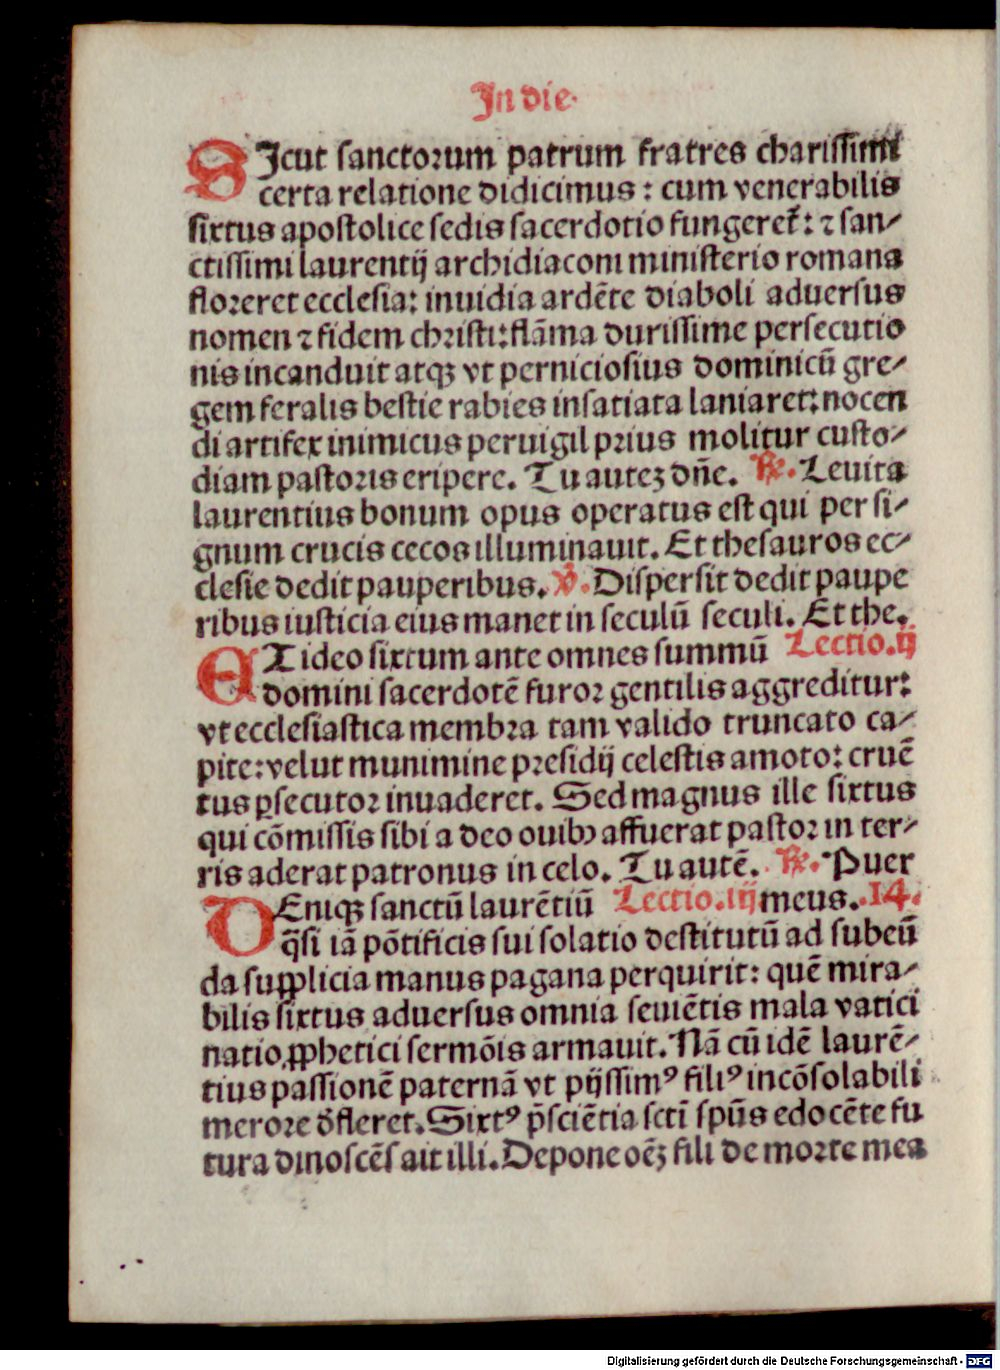 In die.
SIcut sanctorum patrum fratres charissimi
certa relatione didicimus : cum venerabilis
sixtus apostolice sedis sacerdotio fungeret̄: ⁊ san-
ctissimi laurentij archidiaconi ministerio romana
floreret ecclesia: inuidia ardēte diaboli aduersus
nomen ⁊ fidem christi: flāma durissime persecutio
nis incanduit atqꝫ vt perniciosius dominicū gre-
gem feralis bestie rabies insatiata laniaret: nocen
di artifex inimicus peruigil prius molitur custo-
diam pastoris eripere. Tu auteꝫ dn̄e. ℟. Leuita
laurentius bonum opus operatus est qui per si-
gnum crucis cecos illuminauit. Et thesauros ec-
clesie dedit pauperibus. ℣. Dispersit dedit paupe
ribus iusticia eius manet in seculū seculi. Et the.
ET ideo sixtum ante omnes summū Lectio.ij
domini sacerdotē furor gentilis aggreditur:
vt ecclesiastica membra tam valido truncato ca-
pite: velut munimine presidij celestis amoto: cruē
tus ꝑsecutor inuaderet. Sed magnus ille sixtus
qui cōmissis sibi a deo ouibꝰ affuerat pastor in ter-
ris aderat patronus in celo. Tu autē. ℟. Puer
DEniqꝫ sanctū laurētiū Lectio.iij meus. .14.
q̄si iā pōtificis sui solatio destitutū ad subeū
da supplicia manus pagana perquirit: quē mira-
bilis sixtus aduersus omnia seuiētis mala vatici
natio ꝓphetici sermōis armauit. Nā cū idē laurē-
tius passionē paternā vt pijssimꝰ filiꝰ incōsolabili
merore d̄fleret. Sixtꝰ p̄sciētia sctī spūs edocēte fu
tura dinoscēs ait illi. Depone oēꝫ fili de morte mea
Digitalisierung gefördert durch die Deutsche Forschungsgemeinschaft - DFG